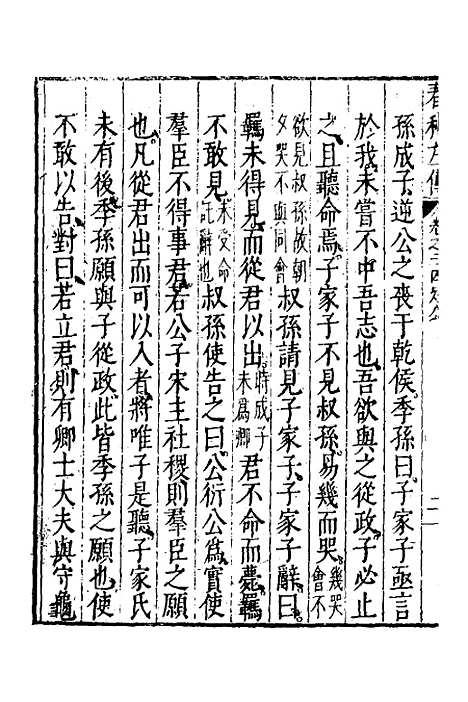 春秋左傳 卷之三四定公 二
孫成子逆公之喪于乾侯季孫曰子家子亟言
於我未嘗不中吾志也吾欲與之從政子必止
之且聽命焉子家子不見叔孫易幾而哭幾哭會不
欲見叔孫故朝夕哭不與同會叔孫請見子家子子家子辭曰
羈未得見而從君以出時成子未爲卿君不命而薨羈
不敢見未受命託辭也叔孫使告之曰公衍公爲實使
羣臣不得事君若公子宋主社稷則羣臣之願
也凡從君出而可以入者將唯子是聽子家氏
未有後季孫願與子從政此皆季孫之願也使
不敢以告對曰若立君則有卿士大夫與守龜